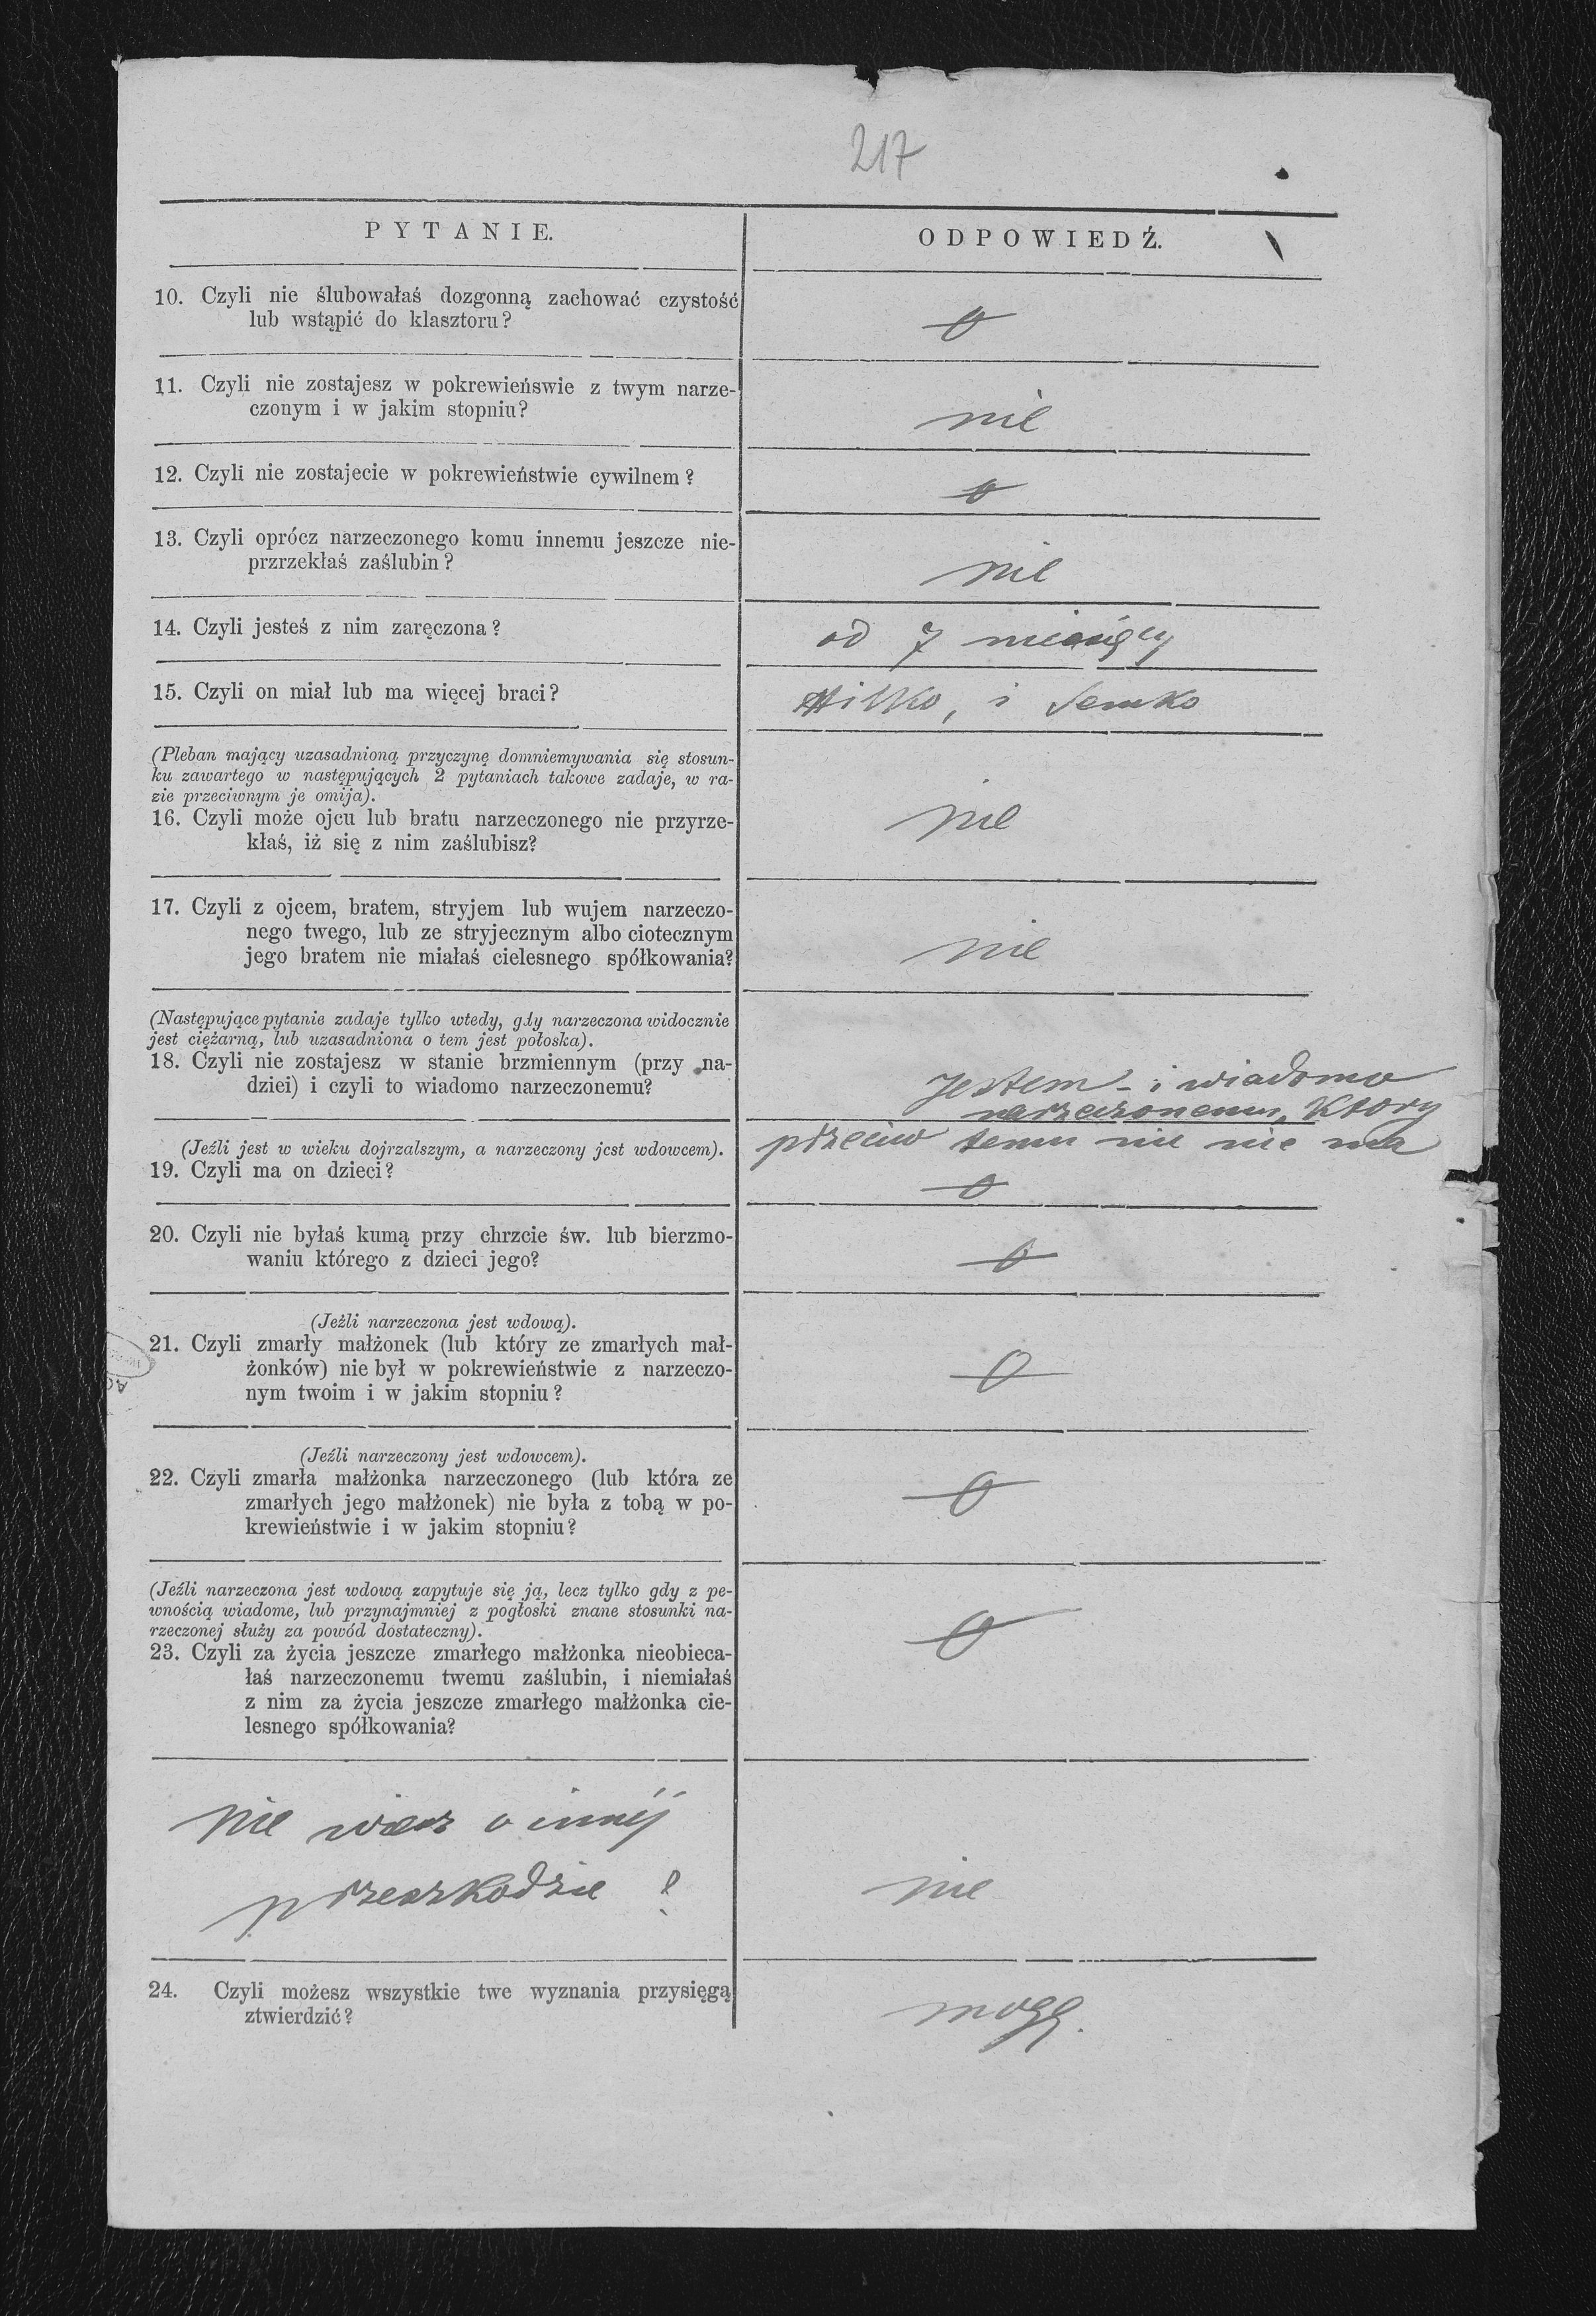 217
PYTANIE.
ODPOWIEDŹ.
10. Czyli nie ślubowałaś dozgonną zachować czystość
lub wstąpić do klasztoru?
o
11. Czyli nie zostajesz w pokrewieńswie z twym narze-
czonym i w jakim stopniu?
nie
12. Czyli nie zostajecie w pokrewieństwie cywilnem?
o
13. Czyli oprócz narzeczonego komu innemu jeszcze nie-
przrzekłaś zaślubin?
nie
14. Czyli jesteś z nim zaręczona?
od 7 miesięcy
15. Czyli on miał lub ma więcej braci?
i Semko
(Pleban mający uzasadnioną przyczynę domniemywania się stosun-
ku zawartego w następujących 2 pytaniach takowe zadaje, w ra-
zie przeciwnym je omija).
16. Czyli może ojcu lub bratu narzeczonego nie przyrze-
kłaś, iż się z nim zaślubisz?
nie
17. Czyli z ojcem, bratem, stryjem lub wujem narzeczo-
nego twego, lub ze stryjecznym albo ciotecznym
jego bratem nie miałaś cielesnego spółkowania?
nie
(Następujące pytanie zadaje tylko wtedy, gdy narzeczona widocznie
jest ciężarną, lub uzasadniona o tem jest połoska).
18. Czyli nie zostajesz w stanie brzmiennym (przy na-
dziei) i czyli to wiadomo narzeczonemu?
Jestem - i wiadomo
narzeczonemu, ktory
przeciw temu nic nie ma
(Jeśli jest w wieku dojrzalszym, a narzeczony jest wdowcem).
19. Czyli ma on dzieci?
o
20. Czyli nie byłaś kumą przy chrzcie św. lub bierzmo-
waniu którego z dzieci jego?
o
(Jeżli narzeczona jest wdową).
21. Czyli zmarły małżonek (lub który ze zmarłych mał-
żonków) nie był w pokrewieństwie z narzeczo-
nym twoim i w jakim stopniu?
o
(Jeźli narzeczony jest wdowcem).
22. Czyli zmarła małżonka narzeczonego (lub która ze
zmarłych jego małżonek) nie była z tobą w po-
krewieństwie i w jakim stopniu?
o
(Jeźli narzeczona jest wdową zapytuje się ją, lecz tylko gdy z pe-
wnością wiadome, lub przynajmniej z pogłoski znane stosunki na-
rzeczonej służy za powód dostateczny).
23. Czyli za życia jeszcze zmarłego małżonka nieobieca-
łaś narzeczonemu twemu zaślubin, i niemiałaś
z nim za życia jeszcze zmarłego małżonka cie-
lesnego spółkowania?
o
nie wiesz o innéj
przeszkodzie?
nie
24. Czyli możesz wszystkie twe wyznania przysięgą
ztwierdzić?
mogę.